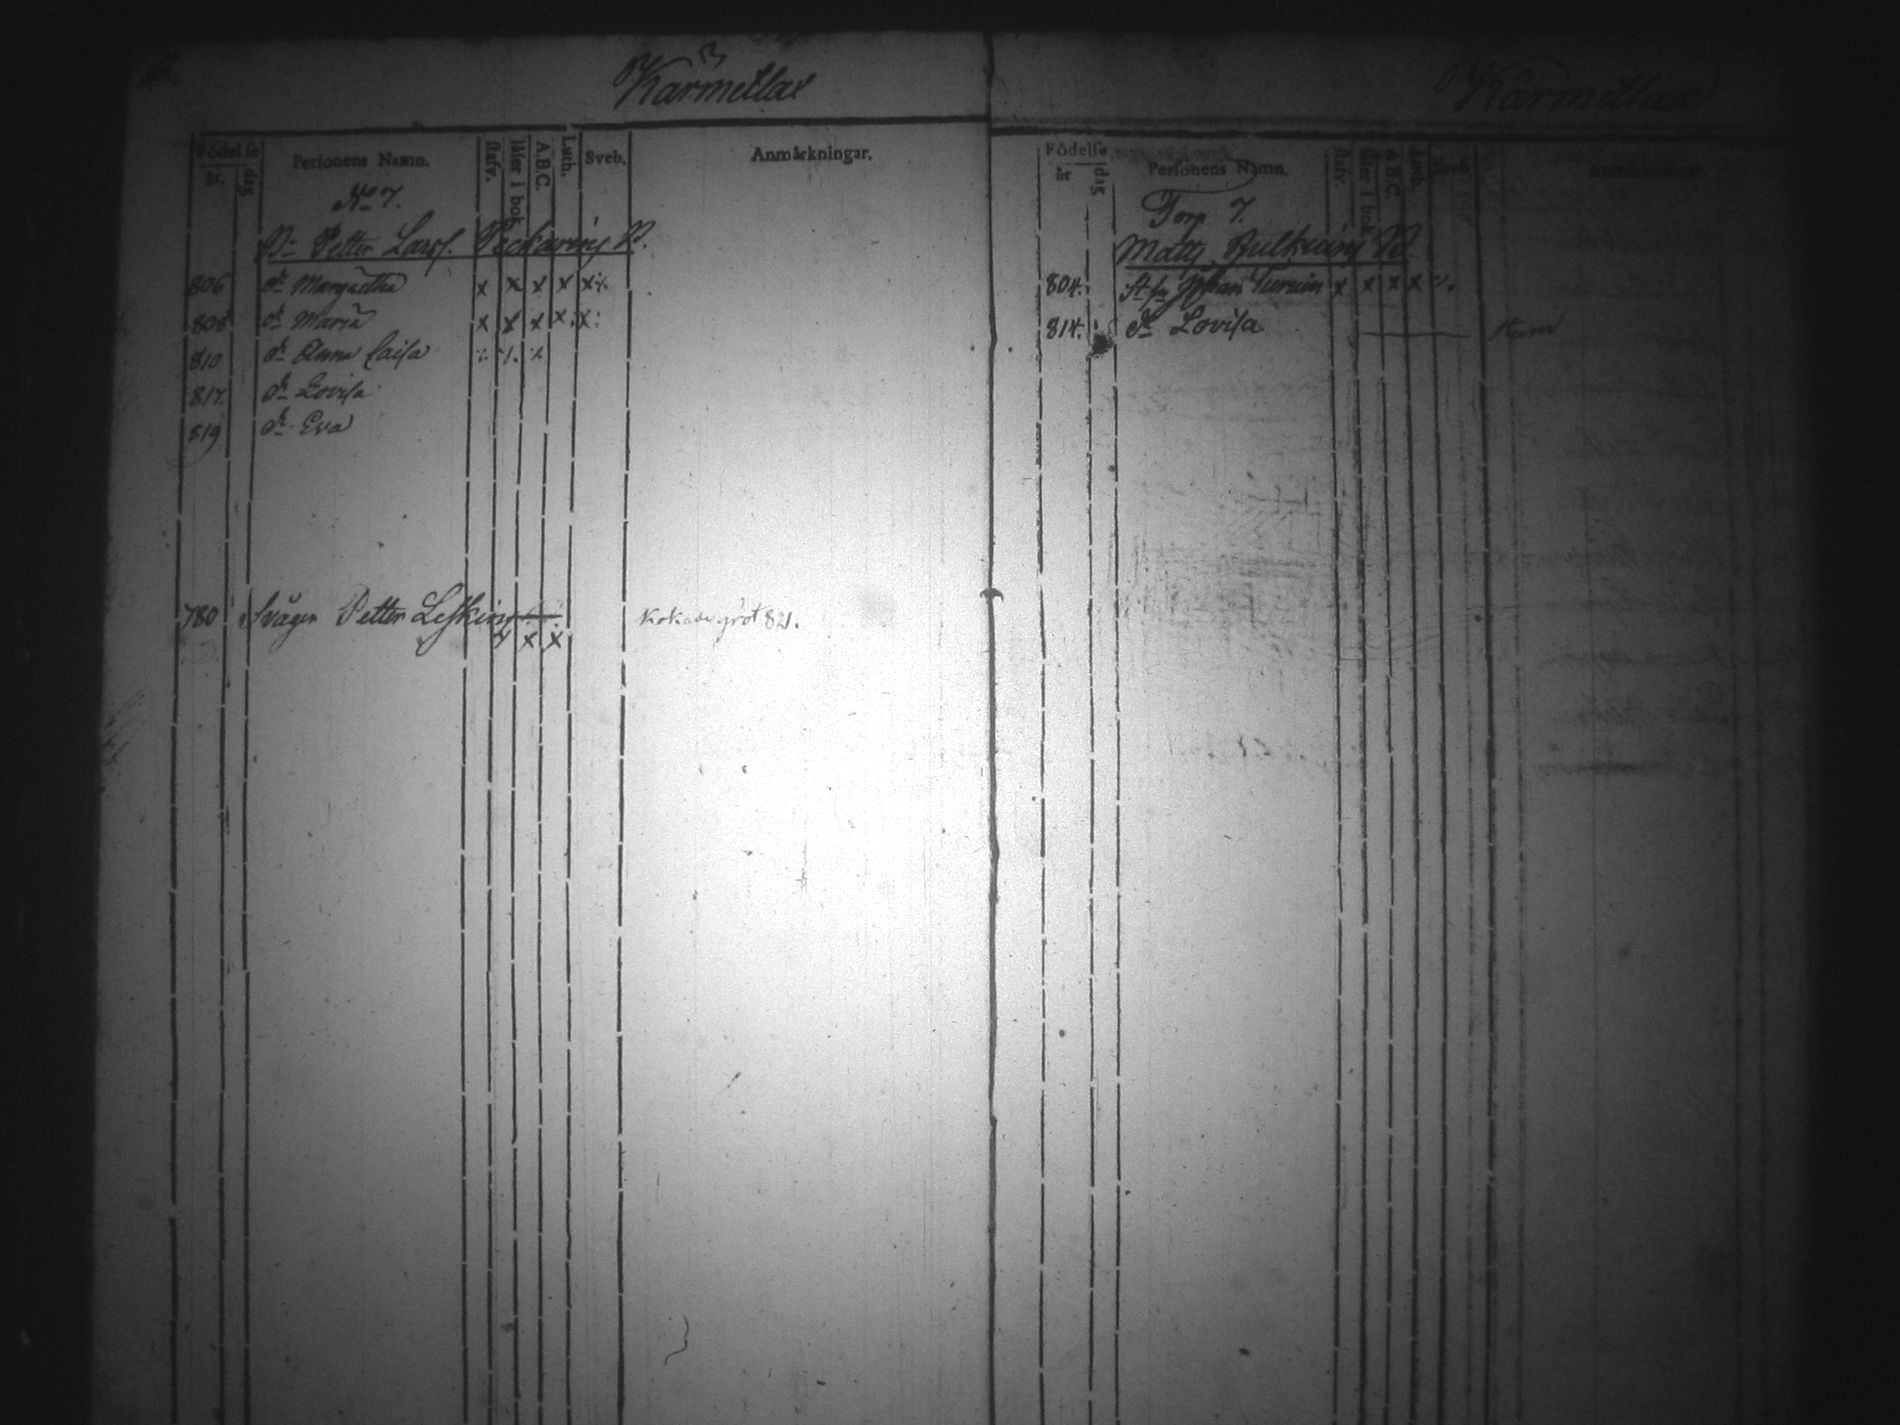 Kärmetlax
Födelse
år. dag
Personens Namn.
stafv.
läser i bok
A.B.C.
Luth.
Sveb.
Anmärkningar.
No 7.
Petter Larss.
806 dr Margaetha x x x x x
808 dr Maria x x x x x
810 dr Anna Caisa
817. dr Lovisa
819 dr Eva
780 Svåger Petter Lesking x x x
82.
Kärmetlax
Födelse
år dag
Personens Namn.
stafv.
läser i bok
A.B.C.
Luth.
Sveb.
Anmärkningar.
Torp 7.
Matts
804. Johan x x x x
814. dr Lovisa